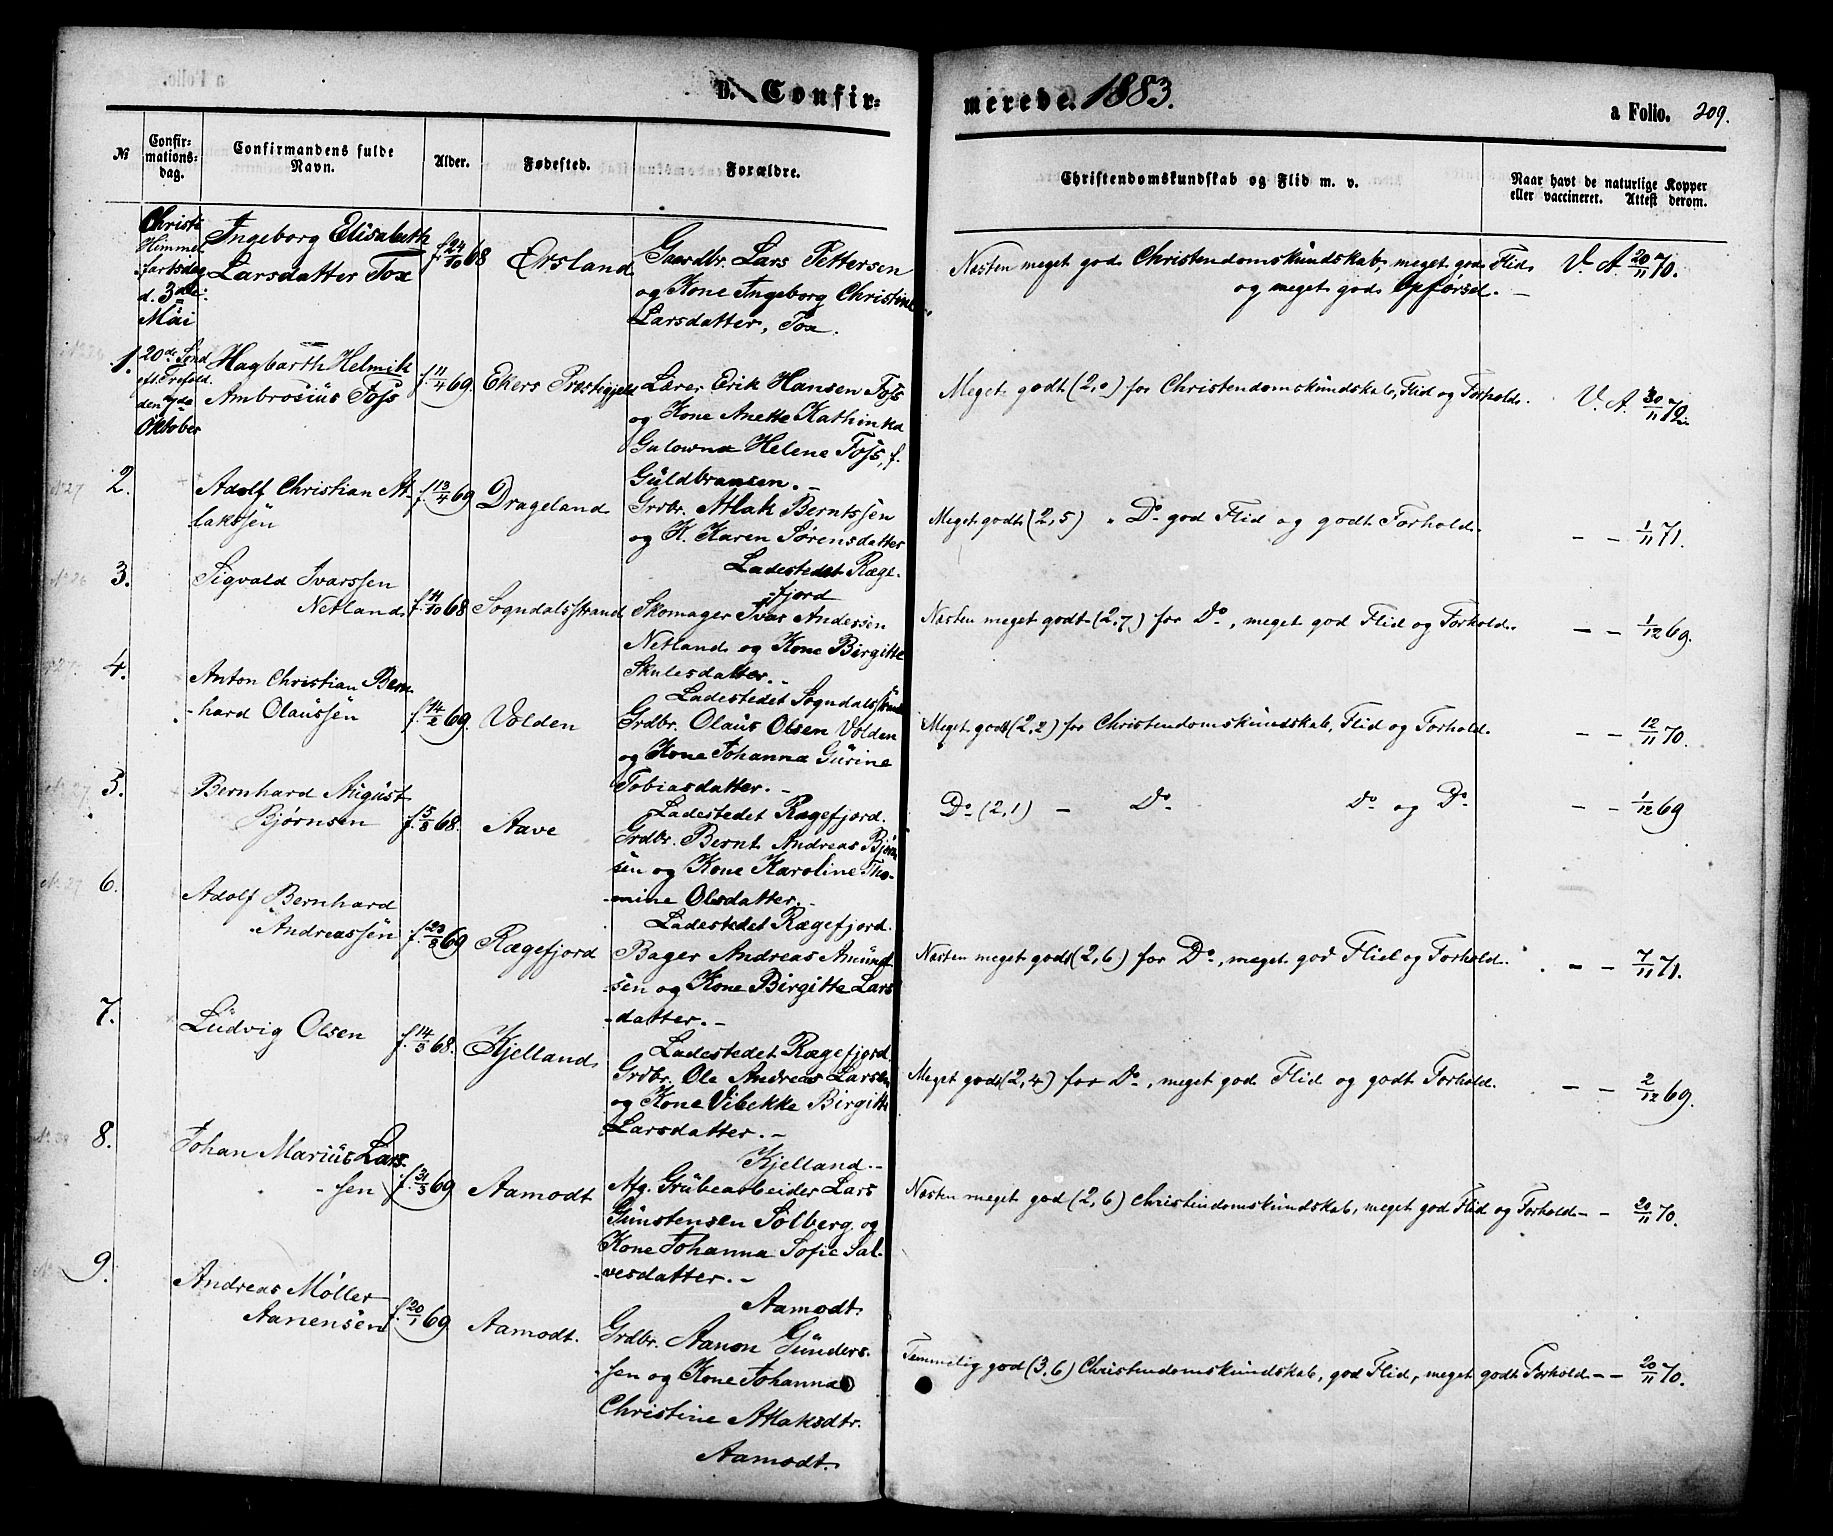 D. Confir-
merede. 1883.
a Folio. 209.
№
Confir-
mations-
dag.
Confirmandens fulde
Navn.
Alder.
Fødested.
Forældre.
Christendomskundskab og Flid m. v.
Naar havt de naturlige Kopper
eller vaccineret. Attest derom.
Christi
Himmel
fartsdag
d. 3die
Mai
Ingeborg Elisabeth
Larsdatter Tox
f. 24/10 68
Ørsland
Gaardbr. Lars Pettersen
og Kone Ingeborg Christine
Larsdatter, Tox.
Næsten meget god Christendomskundskab, meget god Flid
og meget god Opførsel. –
V. A. 20/11 70.
1.
20de Sønd
eft. Trefold.
den 7de
Oktober
Hagbarth Helmik
Ambrosius Foss
f. 11/4 69
Ekers Præstegjeld
Lærer Erik Hansen Foss
og Kone Anette Kathinka
Galowna Helene Foss, f.
Guldbransen. –
Meget godt (2,0) for Christendomskundskab, Flid og Forhold.
V. A. 30/11 72
2.
Adolf Christian At-
lakssen
f. 13/4 69
Drageland
Grdbr. Atlak Berntssen
og K. Karen Sørensdatter
Ladestedet Ræge-
fjord
Meget godt (2,5) " Do god Flid og godt Forhold.
– – 1/11 71.
3.
Sigvald Ivarssen
Netland
f. 11/10 68
Sogndalsstrand
Skomager Ivar Anderssen
Netland og Kone Birgitte
Skulesdatter. –
Ladestedet Sogndalsstrand
Næsten meget godt (2,7) for Do, meget god Flid og Forhold.
– – 1/12 69.
4.
Anton Christian Bern-
hard Olaussen
f. 14/2 69.
Volden
Grdbr. Olaus Olsen Volden
og Kone Johanna Gurine
Tobiasdatter. –
Ladestedet Rægefjord.
Meget godt (2,2) for Christendomskundskab, Flid og Forhold.
– – 12/11 70.
5.
Bernhard August
Bjørnsen
f. 15/8 68.
Aave
Grdbr. Bernt Andreas Bjørn
sen og Kone Karoline Tho-
mine Olsdatter. –
Ladestedet Rægefjord.
Do (2,1) – Do Do og Do
– – 1/12 69
6.
Adolf Bernhard
Andreassen
f. 23/8 69
Rægefjord
Bager Andreas Amund-
sen og Kone Birgitte Lars
datter. –
Ladestedet Rægefjord.
Næsten meget godt (2,6) for Do, meget god Flid og Forhold.
– – 7/11 71.
7.
Ludvig Olsen
f. 14/3 68.
Kjelland
Grdbr. Ole Andreas Larsen
og Kone Vibekke Birgitte
Larsdatter. –
Kjelland. –
Meget godt (2,4) for Do, meget god Flid og godt Forhold.
– – 2/12 69.
8.
Johan Marius Lars-
sen
f. 31/3 69
Aamodt
Afg. Grubearbeider Lars
Gunstensen Solberg og
Kone Johanna Sofie Sal-
vesdatter. –
Aamodt.
Næsten meget god (2,6) Christendomskundskab, meget god Flid og Forhold
– – 20/11 70.
9.
Andreas Møller
Aanensen
f. 20/1 69
Aamodt.
Grdbr. Aanon Gunders-
sen og Kone Johanna
Christine Atlaksdtr.
Aamodt.
Temmelig god (3,6) Christendomskundskab, god Flid, meget godt Forhold
– – 20/11 70.